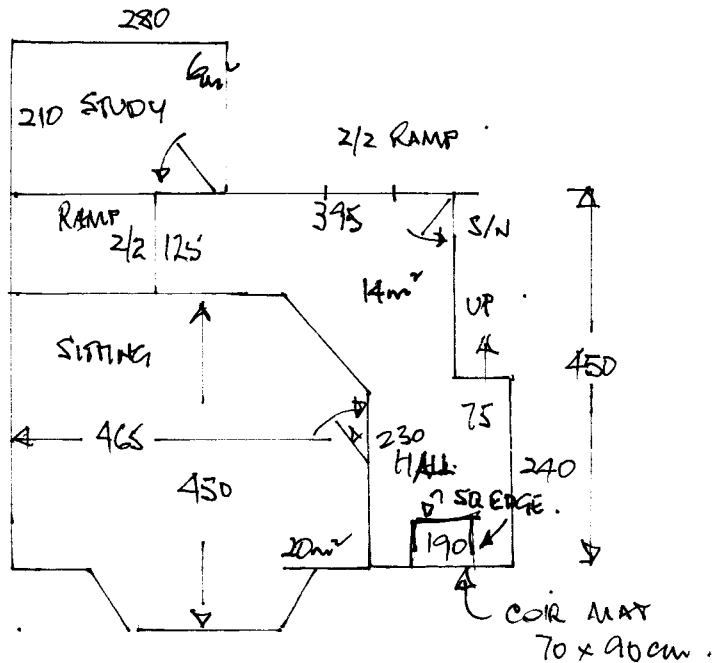 280
6m²
210 STUDY
2/2 RAMP
RAMP
2/2 125
345
S/N
14m²
UP
SITTING
450
75
465
230
HALL
240
450
SQ EDGE.
190
20m²
COIR MAT
70 x 90 cm.